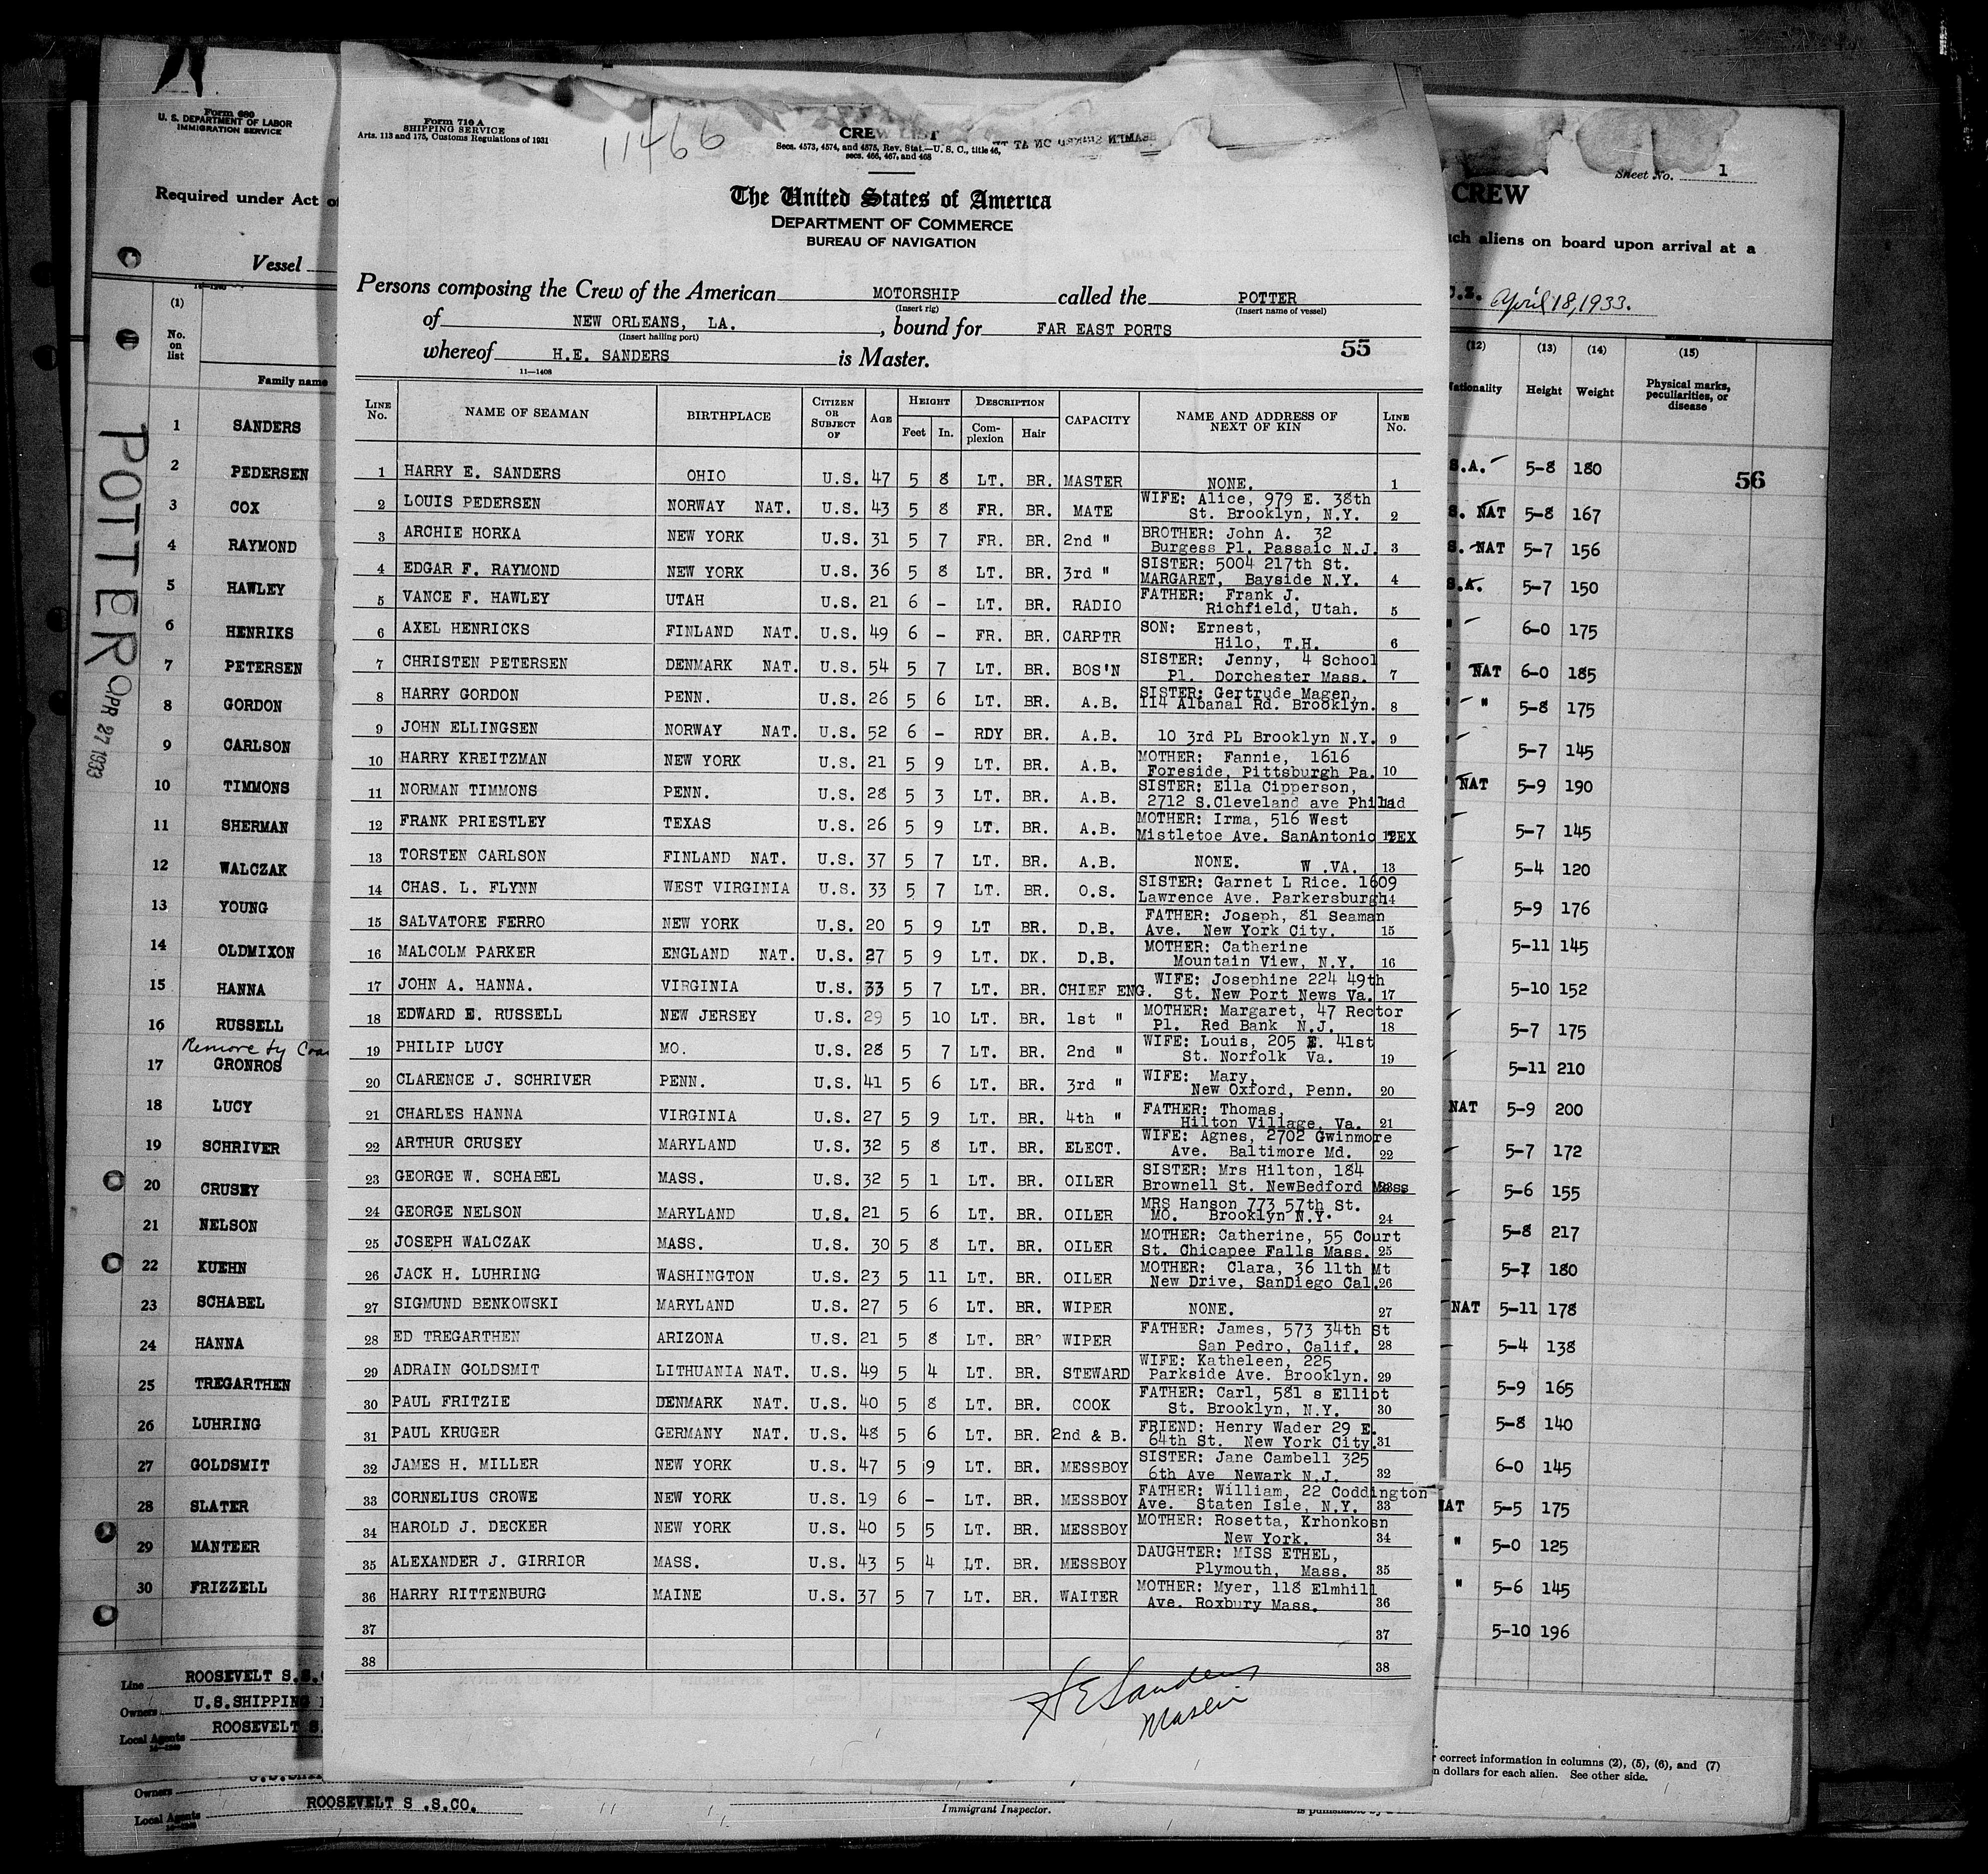 Form 680
U. S. DEPARTMENT OF LABOR
IMMIGRATION SERVICE
Required under Act of
Vessel
(1)
No. on list
Family name
1 SANDERS
2 PEDERSEN
3 COX
4 RAYMOND
5 HAWLEY
6 HENRIKS
7 PETERSEN
8 GORDON
9 CARLSON
10 TIMMONS
11 SHERMAN
12 WALCZAK
13 YOUNG
14 OLDMIXON
15 HANNA
16 RUSSELL
Remove by
17 GRONROS
18 LUCY
19 SCHRIVER
20 CRUSEY
21 NELSON
22 KUEHN
23 SCHABEL
24 HANNA
25 TREGARTHEN
26 LUHRING
27 GOLDSMIT
28 SLATER
29 MANTEER
30 FRIZZELL
Line ROOSEVELT S.S.
Owners U.S.SHIPPING
Local Agents ROOSEVELT S.
Owners
Local Agents ROOSEVELT S .S.CO.
POTTER
APR 27 1933
Form 710 A
SHIPPING SERVICE
Arts. 113 and 175, Customs Regulations of 1931
11466
CREW LIST
Secs. 4573, 4574, and 4575, Rev. Stat.—U. S. C., title 46,
secs. 466, 467, and 468
The United States of America
DEPARTMENT OF COMMERCE
BUREAU OF NAVIGATION
Persons composing the Crew of the American MOTORSHIP called the POTTER
(Insert rig) (Insert name of vessel)
of NEW ORLEANS, LA. , bound for FAR EAST PORTS
(Insert hailing port)
whereof H.E. SANDERS is Master. 55
11—1408
LINE No. NAME OF SEAMAN BIRTHPLACE CITIZEN OR SUBJECT OF AGE HEIGHT Feet In. DESCRIPTION Complexion Hair CAPACITY NAME AND ADDRESS OF NEXT OF KIN LINE No.
1 HARRY E. SANDERS OHIO U.S. 47 5 8 LT. BR. MASTER NONE. 1
2 LOUIS PEDERSEN NORWAY NAT. U.S. 43 5 8 FR. BR. MATE WIFE: Alice, 979 E. 38th
St. Brooklyn, N.Y. 2
3 ARCHIE HORKA NEW YORK U.S. 31 5 7 FR. BR. 2nd " BROTHER: John A. 32
Burgess Pl. Passaic N.J. 3
4 EDGAR F. RAYMOND NEW YORK U.S. 36 5 8 LT. BR. 3rd " SISTER: 5004 217th St.
MARGARET, Bayside N.Y. 4
5 VANCE F. HAWLEY UTAH U.S. 21 6 - LT. BR. RADIO FATHER: Frank J.
Richfield, Utah. 5
6 AXEL HENRICKS FINLAND NAT. U.S. 49 6 - FR. BR. CARPTR SON: Ernest,
Hilo, T.H. 6
7 CHRISTEN PETERSEN DENMARK NAT. U.S. 54 5 7 LT. BR. BOS'N SISTER: Jenny, 4 School
Pl. Dorchester Mass. 7
8 HARRY GORDON PENN. U.S. 26 5 6 LT. BR. A.B. SISTER: Gertrude Magen,
114 Albanal Rd. Brooklyn. 8
9 JOHN ELLINGSEN NORWAY NAT. U.S. 52 6 - RDY BR. A.B. 10 3rd PL Brooklyn N.Y. 9
10 HARRY KREITZMAN NEW YORK U.S. 21 5 9 LT. BR. A.B. MOTHER: Fannie, 1616
Foreside, Pittsburgh Pa. 10
11 NORMAN TIMMONS PENN. U.S. 28 5 3 LT. BR. A.B. SISTER: Ella Cipperson,
2712 S.Cleveland ave Philad
12 FRANK PRIESTLEY TEXAS U.S. 26 5 9 LT. BR. A.B. MOTHER: Irma, 516 West
Mistletoe Ave. SanAntonio TEX
13 TORSTEN CARLSON FINLAND NAT. U.S. 37 5 7 LT. BR. A.B. NONE. W .VA. 13
14 CHAS. L. FLYNN WEST VIRGINIA U.S. 33 5 7 LT. BR. O.S. SISTER: Garnet L Rice. 1609
Lawrence Ave. Parkersburgh 14
15 SALVATORE FERRO NEW YORK U.S. 20 5 9 LT BR. D.B. FATHER: Joseph, 81 Seaman
Ave. New York City. 15
16 MALCOLM PARKER ENGLAND NAT. U.S. 27 5 9 LT. DK. D.B. MOTHER: Catherine
Mountain View, N.Y. 16
17 JOHN A. HANNA. VIRGINIA U.S. 33 5 7 LT. BR. CHIEF ENG. WIFE: Josephine 224 49th
St. New Port News Va. 17
18 EDWARD E. RUSSELL NEW JERSEY U.S. 29 5 10 LT. BR. 1st " MOTHER: Margaret, 47 Rector
Pl. Red Bank N.J. 18
19 PHILIP LUCY MO. U.S. 28 5 7 LT. BR. 2nd " WIFE: Louis, 205 E. 41st
St. Norfolk Va. 19
20 CLARENCE J. SCHRIVER PENN. U.S. 41 5 6 LT. BR. 3rd " WIFE: Mary,
New Oxford, Penn. 20
21 CHARLES HANNA VIRGINIA U.S. 27 5 9 LT. BR. 4th " FATHER: Thomas,
Hilton Village, Va. 21
22 ARTHUR CRUSEY MARYLAND U.S. 32 5 8 LT. BR. ELECT. WIFE: Agnes, 2702 Gwinmore
Ave. Baltimore Md. 22
23 GEORGE W. SCHABEL MASS. U.S. 32 5 1 LT. BR. OILER SISTER: Mrs Hilton, 184
Brownell St. NewBedford Mass
24 GEORGE NELSON MARYLAND U.S. 21 5 6 LT. BR. OILER MRS Hanson 773 57th St.
MO. Brooklyn N.Y. 24
25 JOSEPH WALCZAK MASS. U.S. 30 5 8 LT. BR. OILER MOTHER: Catherine, 55 Court
St. Chicapee Falls Mass. 25
26 JACK H. LUHRING WASHINGTON U.S. 23 5 11 LT. BR. OILER MOTHER: Clara, 36 11th Mt
New Drive, SanDiego Cal. 26
27 SIGMUND BENKOWSKI MARYLAND U.S. 27 5 6 LT. BR. WIPER NONE. 27
28 ED TREGARTHEN ARIZONA U.S. 21 5 8 LT. BR? WIPER FATHER: James, 573 34th St
San Pedro, Calif. 28
29 ADRAIN GOLDSMIT LITHUANIA NAT. U.S. 49 5 4 LT. BR. STEWARD WIFE: Katheleen, 225
Parkside Ave. Brooklyn. 29
30 PAUL FRITZIE DENMARK NAT. U.S. 40 5 8 LT. BR. COOK FATHER: Carl, 581 s Elliot
St. Brooklyn, N.Y. 30
31 PAUL KRUGER GERMANY NAT. U.S. 48 5 6 LT. BR. 2nd & B. FRIEND: Henry Wader 29 E.
64th St. New York City. 31
32 JAMES H. MILLER NEW YORK U.S. 47 5 9 LT. BR. MESSBOY SISTER: Jane Cambell 325
6th Ave Newark N.J. 32
33 CORNELIUS CROWE NEW YORK U.S. 19 6 - LT. BR. MESSBOY FATHER: William, 22 Coddington
Ave. Staten Isle, N.Y. 33
34 HAROLD J. DECKER NEW YORK U.S. 40 5 5 LT. BR. MESSBOY MOTHER: Rosetta, Krhonkosn
New York. 34
35 ALEXANDER J. GIRRIOR MASS. U.S. 43 5 4 LT. BR. MESSBOY DAUGHTER: MISS ETHEL,
Plymouth, Mass. 35
36 HARRY RITTENBURG MAINE U.S. 37 5 7 LT. BR. WAITER MOTHER: Myer, 118 Elmhill
Ave. Roxbury Mass. 36
37 37
38 38
H E Sanders
Master
Immigrant Inspector.
Sheet No. 1
CREW
such aliens on board upon arrival at a
April 18, 1933.
(12) (13) (14) (15)
Nationality Height Weight Physical marks, peculiarities, or disease
56
S.A. 5-8 180
S. NAT 5-8 167
S. NAT 5-7 156
S.A. 5-7 150
" 6-0 175
" NAT 6-0 185
" " 5-8 175
" 5-7 145
" NAT 5-9 190
5-7 145
5-4 120
5-9 176
5-11 145
5-10 152
5-7 175
5-11 210
NAT 5-9 200
5-7 172
5-6 155
5-8 217
5-7 180
NAT 5-11 178
5-4 138
5-9 165
5-8 140
6-0 145
NAT 5-5 175
" 5-0 125
" 5-6 145
5-10 196
correct information in columns (2), (5), (6), and (7)
dollars for each alien. See other side.